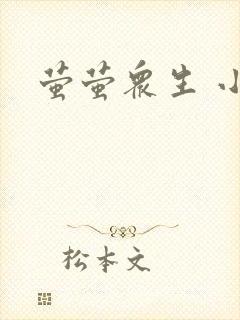 萤萤众生 小
松本文